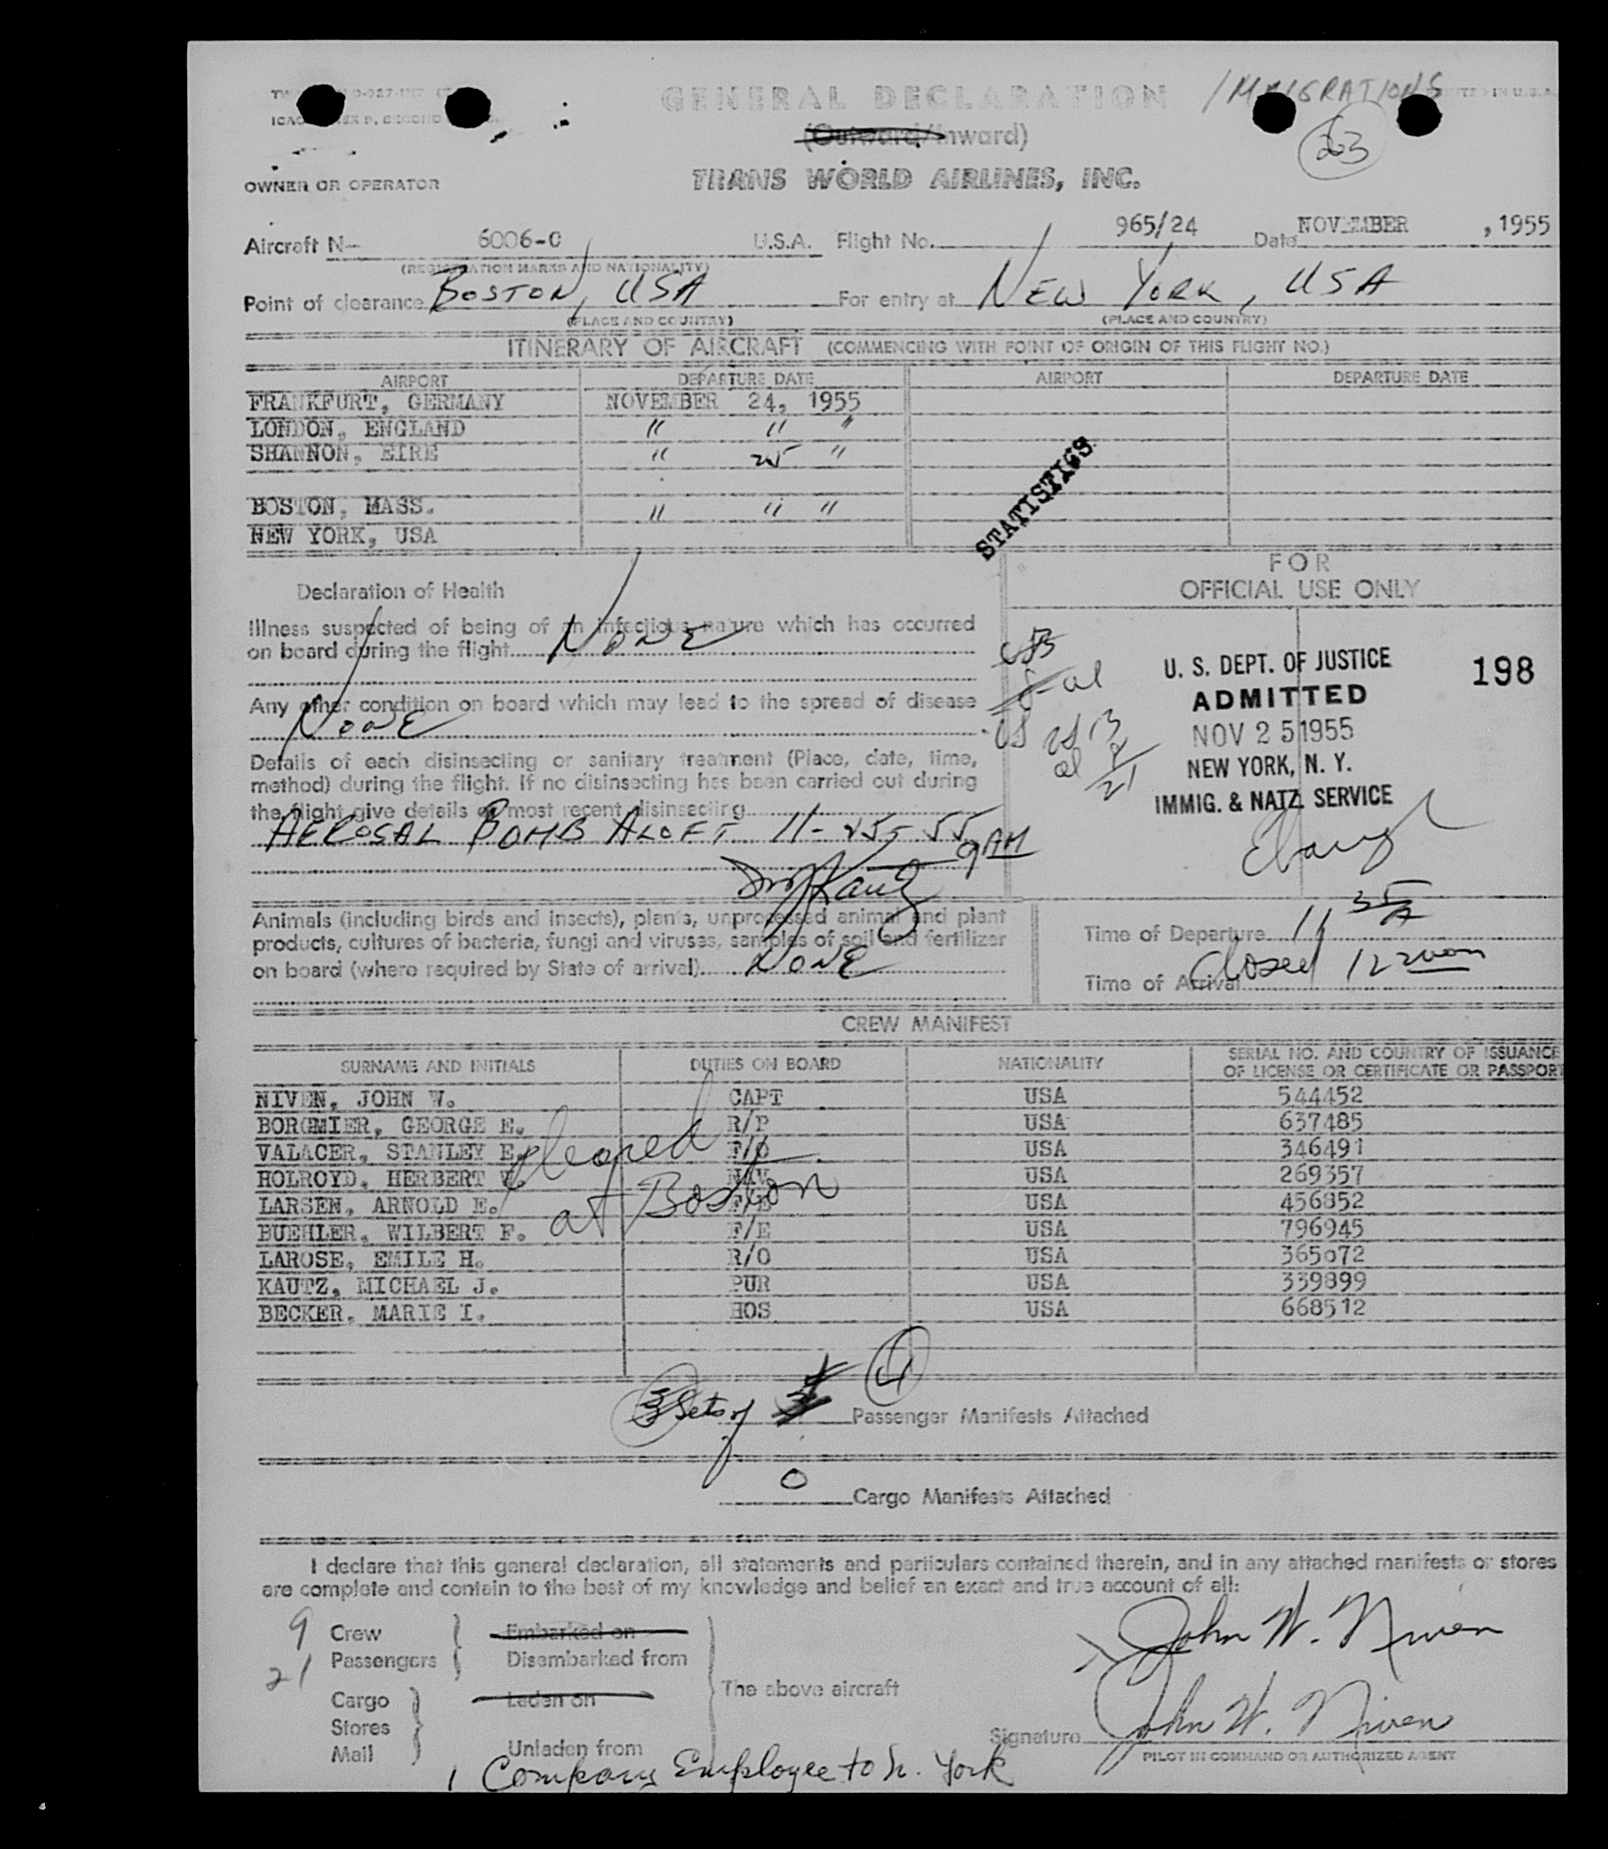 GENERAL DECLARATION
IMMIGRATIONS
(Outward/Inward)
23
OWNER OR OPERATOR
TRANS WORLD AIRLINES, INC.
Aircraft N- 6006-C U.S.A. Flight No. 965/24 Date NOVEMBER , 1955
(REGISTRATION MARKS AND NATIONALITY)
Point of clearance BOSTON, USA For entry at NEW YORK, USA
(PLACE AND COUNTRY) (PLACE AND COUNTRY)
ITINERARY OF AIRCRAFT (COMMENCING WITH POINT OF ORIGIN OF THIS FLIGHT NO.)
AIRPORT DEPARTURE DATE AIRPORT DEPARTURE DATE
FRANKFURT, GERMANY NOVEMBER 24, 1955
LONDON, ENGLAND " " "
SHANNON, EIRE " 25 "
BOSTON, MASS. " " "
NEW YORK, USA
STATISTICS
FOR
OFFICIAL USE ONLY
Declaration of Health
Illness suspected of being of an infectious nature which has occurred
on board during the flight NONE
Any other condition on board which may lead to the spread of disease
NONE
Details of each disinsecting or sanitary treatment (Place, date, time,
method) during the flight. If no disinsecting has been carried out during
the flight give details of most recent disinsecting
AEROSAL BOMB ALOFT 11-25-55 9AM
U. S. DEPT. OF JUSTICE
ADMITTED
NOV 25 1955
NEW YORK, N. Y.
IMMIG. & NATZ. SERVICE
198
Animals (including birds and insects), plants, unprocessed animal and plant
products, cultures of bacteria, fungi and viruses, samples of soil and fertilizer
on board (where required by State of arrival) NONE
Time of Departure 11 35A
Time of Arrival Closed 12 noon
CREW MANIFEST
SURNAME AND INITIALS DUTIES ON BOARD NATIONALITY SERIAL NO. AND COUNTRY OF ISSUANCE
OF LICENSE OR CERTIFICATE OR PASSPORT
NIVEN, JOHN W. CAPT USA 544452
BORGMIER, GEORGE E. R/P USA 637485
VALACER, STANLEY E. F/O USA 346491
HOLROYD, HERBERT V. NAV. USA 269357
LARSEN, ARNOLD E. F/E USA 456852
BUEHLER, WILBERT F. F/E USA 796945
LAROSE, EMILE H. R/O USA 365072
KAUTZ, MICHAEL J. PUR USA 339899
BECKER, MARIE I. HOS USA 668512
Cleared
at Boston
3 Sets of 4 Passenger Manifests Attached
0 Cargo Manifests Attached
I declare that this general declaration, all statements and particulars contained therein, and in any attached manifests or stores
are complete and contain to the best of my knowledge and belief an exact and true account of all:
9 Crew Embarked on
21 Passengers Disembarked from
Cargo Laden on
Stores
Mail Unladen from
The above aircraft
John W. Niven
Signature John W. Niven
PILOT IN COMMAND OR AUTHORIZED AGENT
1 Company Employee to N. York